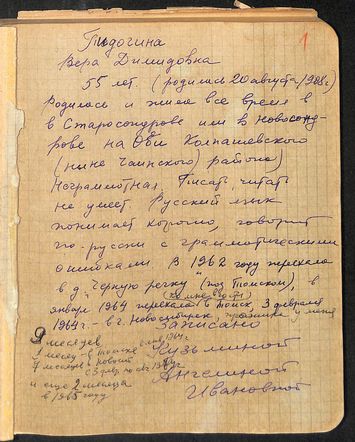 1
Пидогина
Вера Димидовна
55 лет. (родилась 20 августа 1908г.)
Родилась и жила все время в
в Старосондрове или в Новосонд-
рове на Оби Колпашевского
(ныне Чаинского) района)
Неграмотная. Писать, читать
не умеет. Русский язык
понимает хорошо, говорит
по-русски с грамматическими
ошибками. В 1962 году переехала
в д. "Черную речку" (под Томском), в
январе 1964 переехала в Томск, 3 февраля
1964г. - в г. Новосибирск
Записано
Кузьминой
Ангелиной
Ивановной
9 месяцев
1 месяц - в Томске
7 месяцев в Новосиб
и еще 2 месяца
в 1965 году